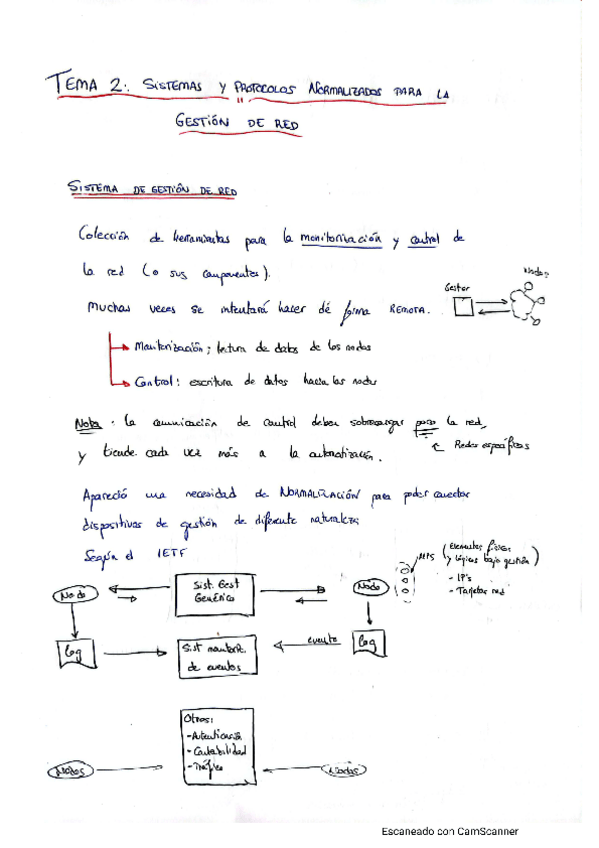 TEMA 2: SISTEMAS Y PROTOCOLOS NORMALIZADOS PARA LA
GESTIÓN DE RED
SISTEMA DE GESTIÓN DE RED
Colección de herramientas para la monitorización y control de
la red (o sus componentes).
Muchas veces se intentará hacer de forma REMOTA.
Gestor
Nodos
Monitorización; lectura de datos de los nodos
Control: escritura de datos hacia los nodos
Nota: la comunicación de control deben sobrecargar poco la red,
y tiende cada vez más a la automatización.
Redes específicas
Apareció una necesidad de NORMALIZACIÓN para poder conectar
dispositivos de gestión de diferente naturaleza
Según el IETF
(Elementos físicos
y lógicos bajo gestión)
- IP's
- Tarjetas red
Nodo
Sist. Gest
Genérico
Nodo
log
Sist monitoriz.
de eventos
evento
log
Otros:
- Autenticación
- Contabilidad
- Tráfico
Nodos
Nodos
Escaneado con CamScanner